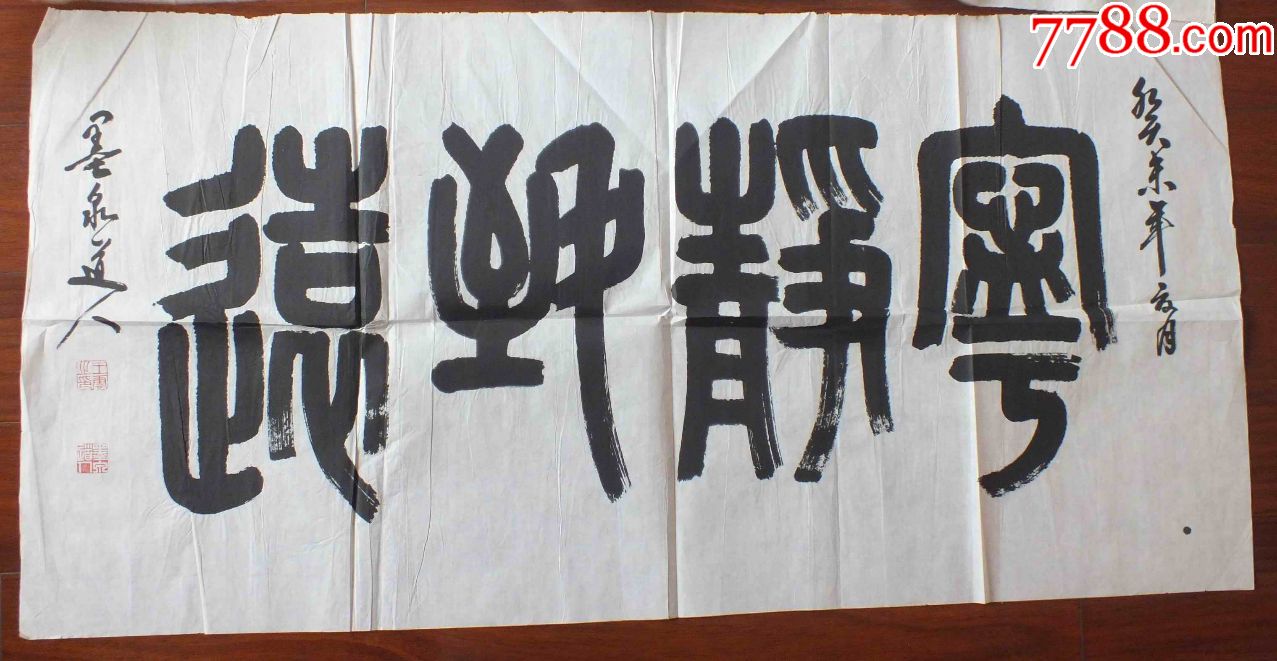 7788.com
癸未年夏月
寧靜致遠
墨泉道人